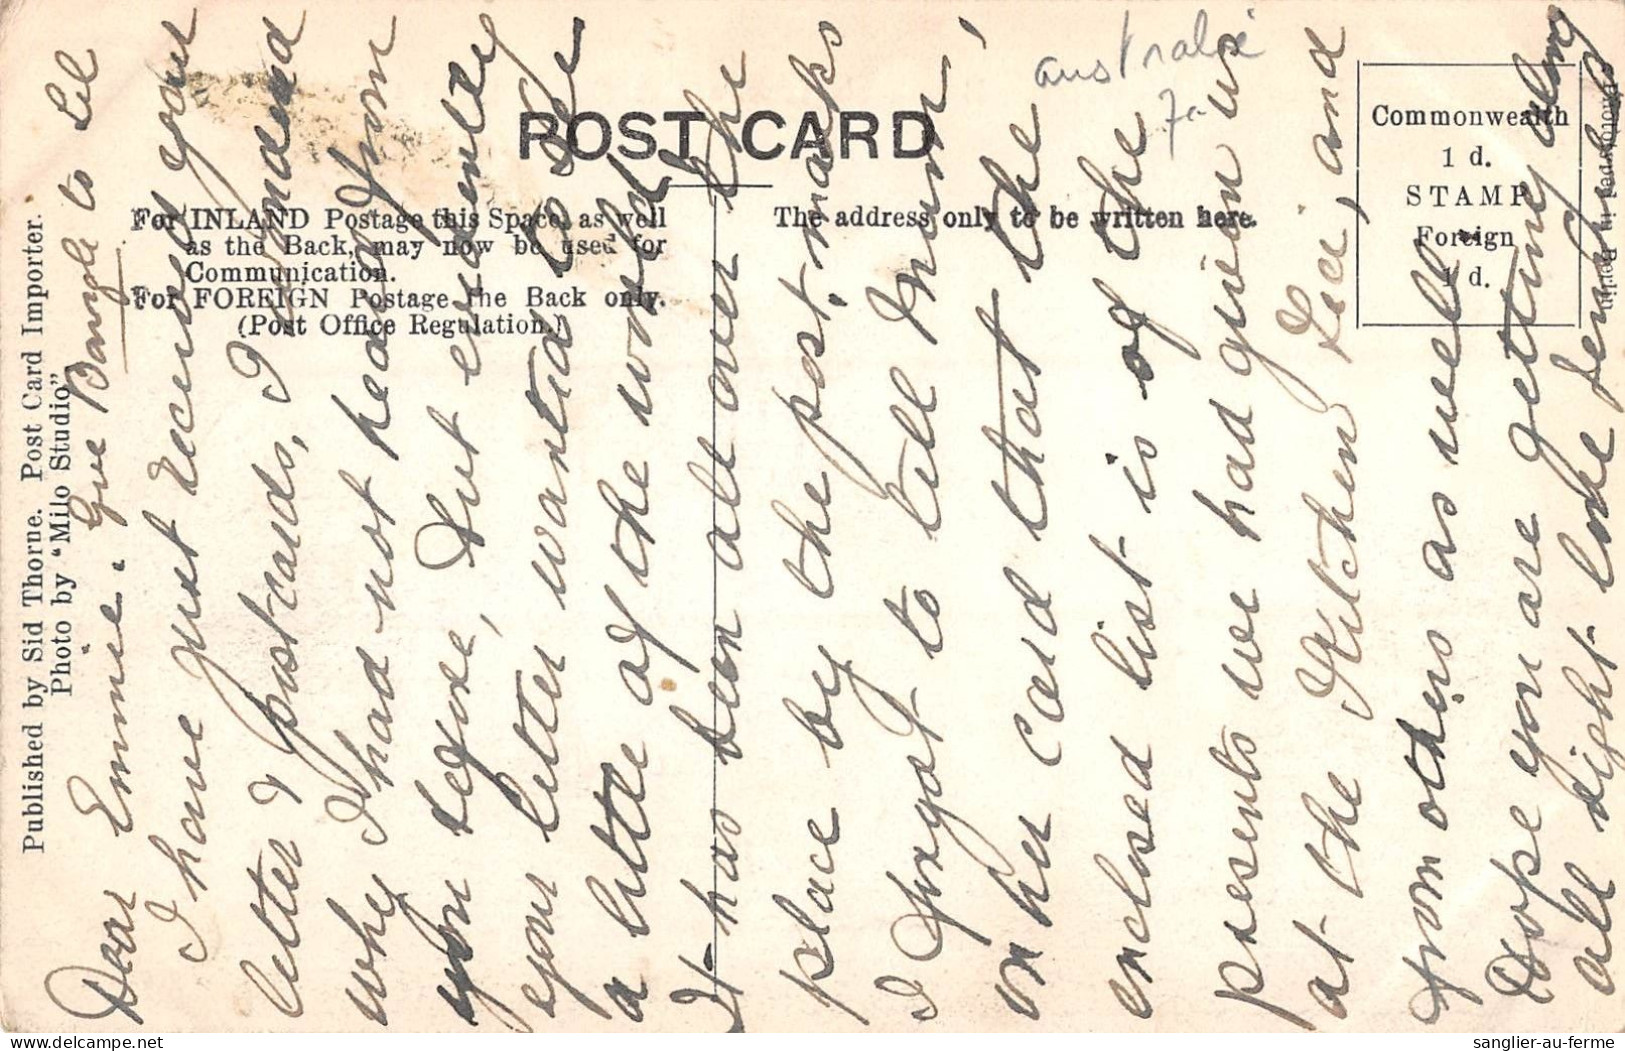 Published by Sid Thorne. Post Card Importer.
Photo by "Milo Studio"
POST CARD
For INLAND Postage this Space, as well
as the Back, may now be used for
Communication.
For FOREIGN Postage the Back only.
(Post Office Regulation.)
The address only to be written here.
Commonwealth
1 d.
STAMP
Foreign
1 d.
Phototyped in Berlin
australie
Give Bangle to Lil
Dear Emmie.
I have just received your
letter & postcards, I wondered
why I had not heard from
you before, but evidently
your letter wanted to see
a little of the world
It has been all over the
place by the post, marks
I forgot to tell Mum,
on her card that the
enclosed list is of the
presents we had given us
at the Kitchen Tea, and
from others as well
Hope you are getting along
all right love Jenny
sanglier-au-ferme